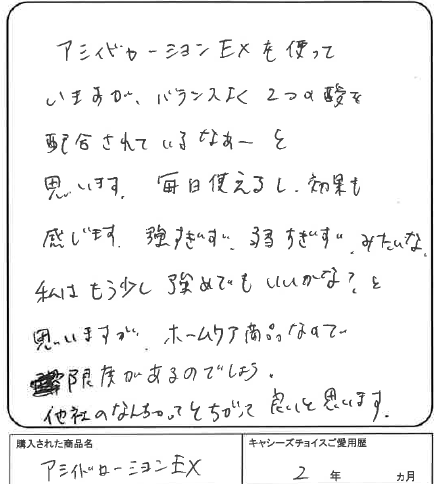 アシィドローションEXを使って
いますが、バランスよく2つの酸を
配合されているなあーと
思います。毎日使えるし、効果も
感じます。強すぎず、弱すぎず、みたいな。
私はもう少し強めでもいいかな？と
思いますが、ホームケア商品なので
限度があるのでしょう。
他社のなんちゃってとちがって良いと思います。
購入された商品名
キャシーズチョイスご愛用歴
アシィドローションEX
2 年 ヵ月